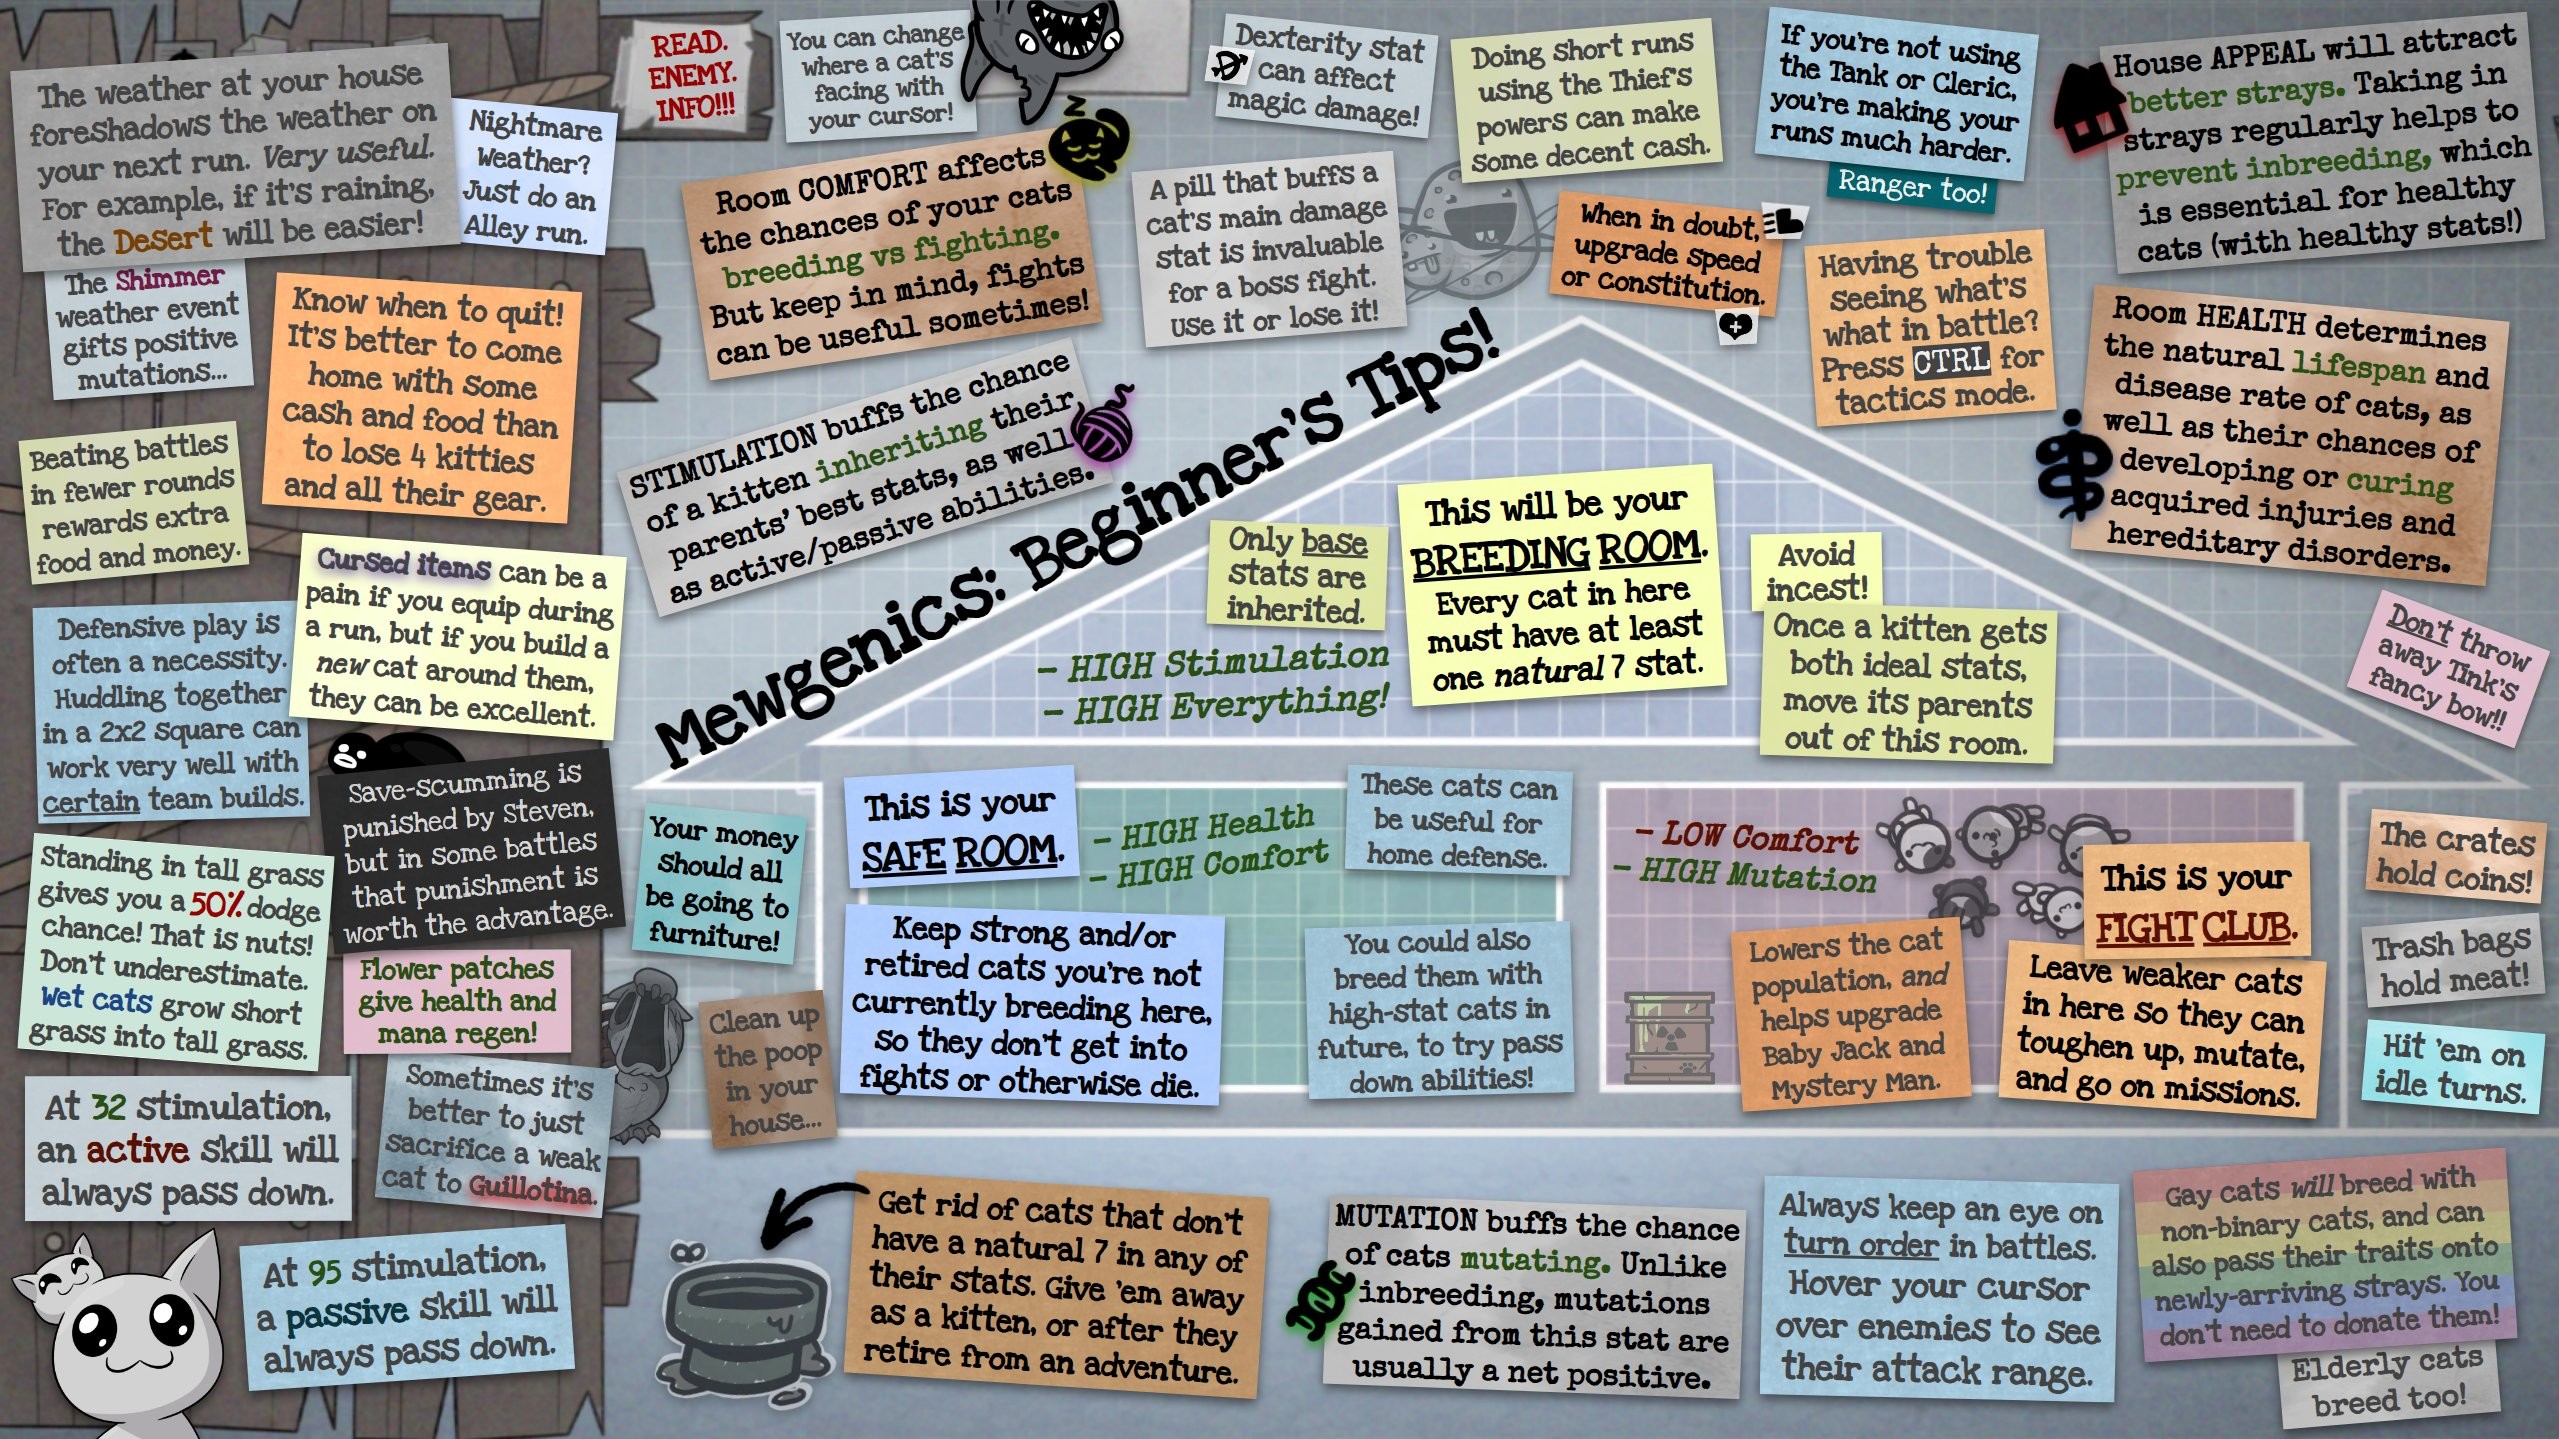 The weather at your house
foreshadows the weather on
your next run. Very useful.
For example, if it's raining,
the Desert will be easier!
Nightmare
Weather?
Just do an
Alley run.
The Shimmer
weather event
gifts positive
mutations...
Know when to quit!
It's better to come
home with some
cash and food than
to lose 4 kitties
and all their gear.
Beating battles
in fewer rounds
rewards extra
food and money.
Cursed items can be a
pain if you equip during
a run, but if you build a
new cat around them,
they can be excellent.
Defensive play is
often a necessity.
Huddling together
in a 2x2 square can
work very well with
certain team builds.
Save-scumming is
punished by Steven,
but in some battles
that punishment is
worth the advantage.
Standing in tall grass
gives you a 50% dodge
chance! That is nuts!
Don't underestimate.
Wet cats grow short
grass into tall grass.
Flower patches
give health and
mana regen!
At 32 stimulation,
an active skill will
always pass down.
Sometimes it's
better to just
sacrifice a weak
cat to Guillotina.
At 95 stimulation,
a passive skill will
always pass down.
READ.
ENEMY.
INFO!!!
You can change
where a cat's
facing with
your cursor!
Dexterity stat
can affect
magic damage!
Doing short runs
using the Thief's
powers can make
some decent cash.
If you're not using
the Tank or Cleric,
you're making your
runs much harder.
Ranger too!
House APPEAL will attract
better strays. Taking in
strays regularly helps to
prevent inbreeding, which
is essential for healthy
cats (with healthy stats!)
Z
Room COMFORT affects
the chances of your cats
breeding vs fighting.
But keep in mind, fights
can be useful sometimes!
A pill that buffs a
cat's main damage
stat is invaluable
for a boss fight.
Use it or lose it!
When in doubt,
upgrade speed
or constitution.
Having trouble
seeing what's
what in battle?
Press CTRL for
tactics mode.
Room HEALTH determines
the natural lifespan and
disease rate of cats, as
well as their chances of
developing or curing
acquired injuries and
hereditary disorders.
STIMULATION buffs the chance
of a kitten inheriting their
parents' best stats, as well
as active/passive abilities.
Mewgenics: Beginner's Tips!
Only base
stats are
inherited.
- HIGH Stimulation
- HIGH Everything!
This will be your
BREEDING ROOM.
Every cat in here
must have at least
one natural 7 stat.
Avoid
incest!
Once a kitten gets
both ideal stats,
move its parents
out of this room.
Don't throw
away Tink's
fancy bow!!
Your money
should all
be going to
furniture!
Clean up
the poop
in your
house...
This is your
SAFE ROOM.
- HIGH Health
- HIGH Comfort
These cats can
be useful for
home defense.
Keep strong and/or
retired cats you're not
currently breeding here,
so they don't get into
fights or otherwise die.
You could also
breed them with
high-stat cats in
future, to try pass
down abilities!
- LOW Comfort
- HIGH Mutation
This is your
FIGHT CLUB.
Lowers the cat
population, and
helps upgrade
Baby Jack and
Mystery Man.
Leave weaker cats
in here so they can
toughen up, mutate,
and go on missions.
The crates
hold coins!
Trash bags
hold meat!
Hit 'em on
idle turns.
Get rid of cats that don't
have a natural 7 in any of
their stats. Give 'em away
as a kitten, or after they
retire from an adventure.
MUTATION buffs the chance
of cats mutating. Unlike
inbreeding, mutations
gained from this stat are
usually a net positive.
Always keep an eye on
turn order in battles.
Hover your cursor
over enemies to see
their attack range.
Gay cats will breed with
non-binary cats, and can
also pass their traits onto
newly-arriving strays. You
don't need to donate them!
Elderly cats
breed too!